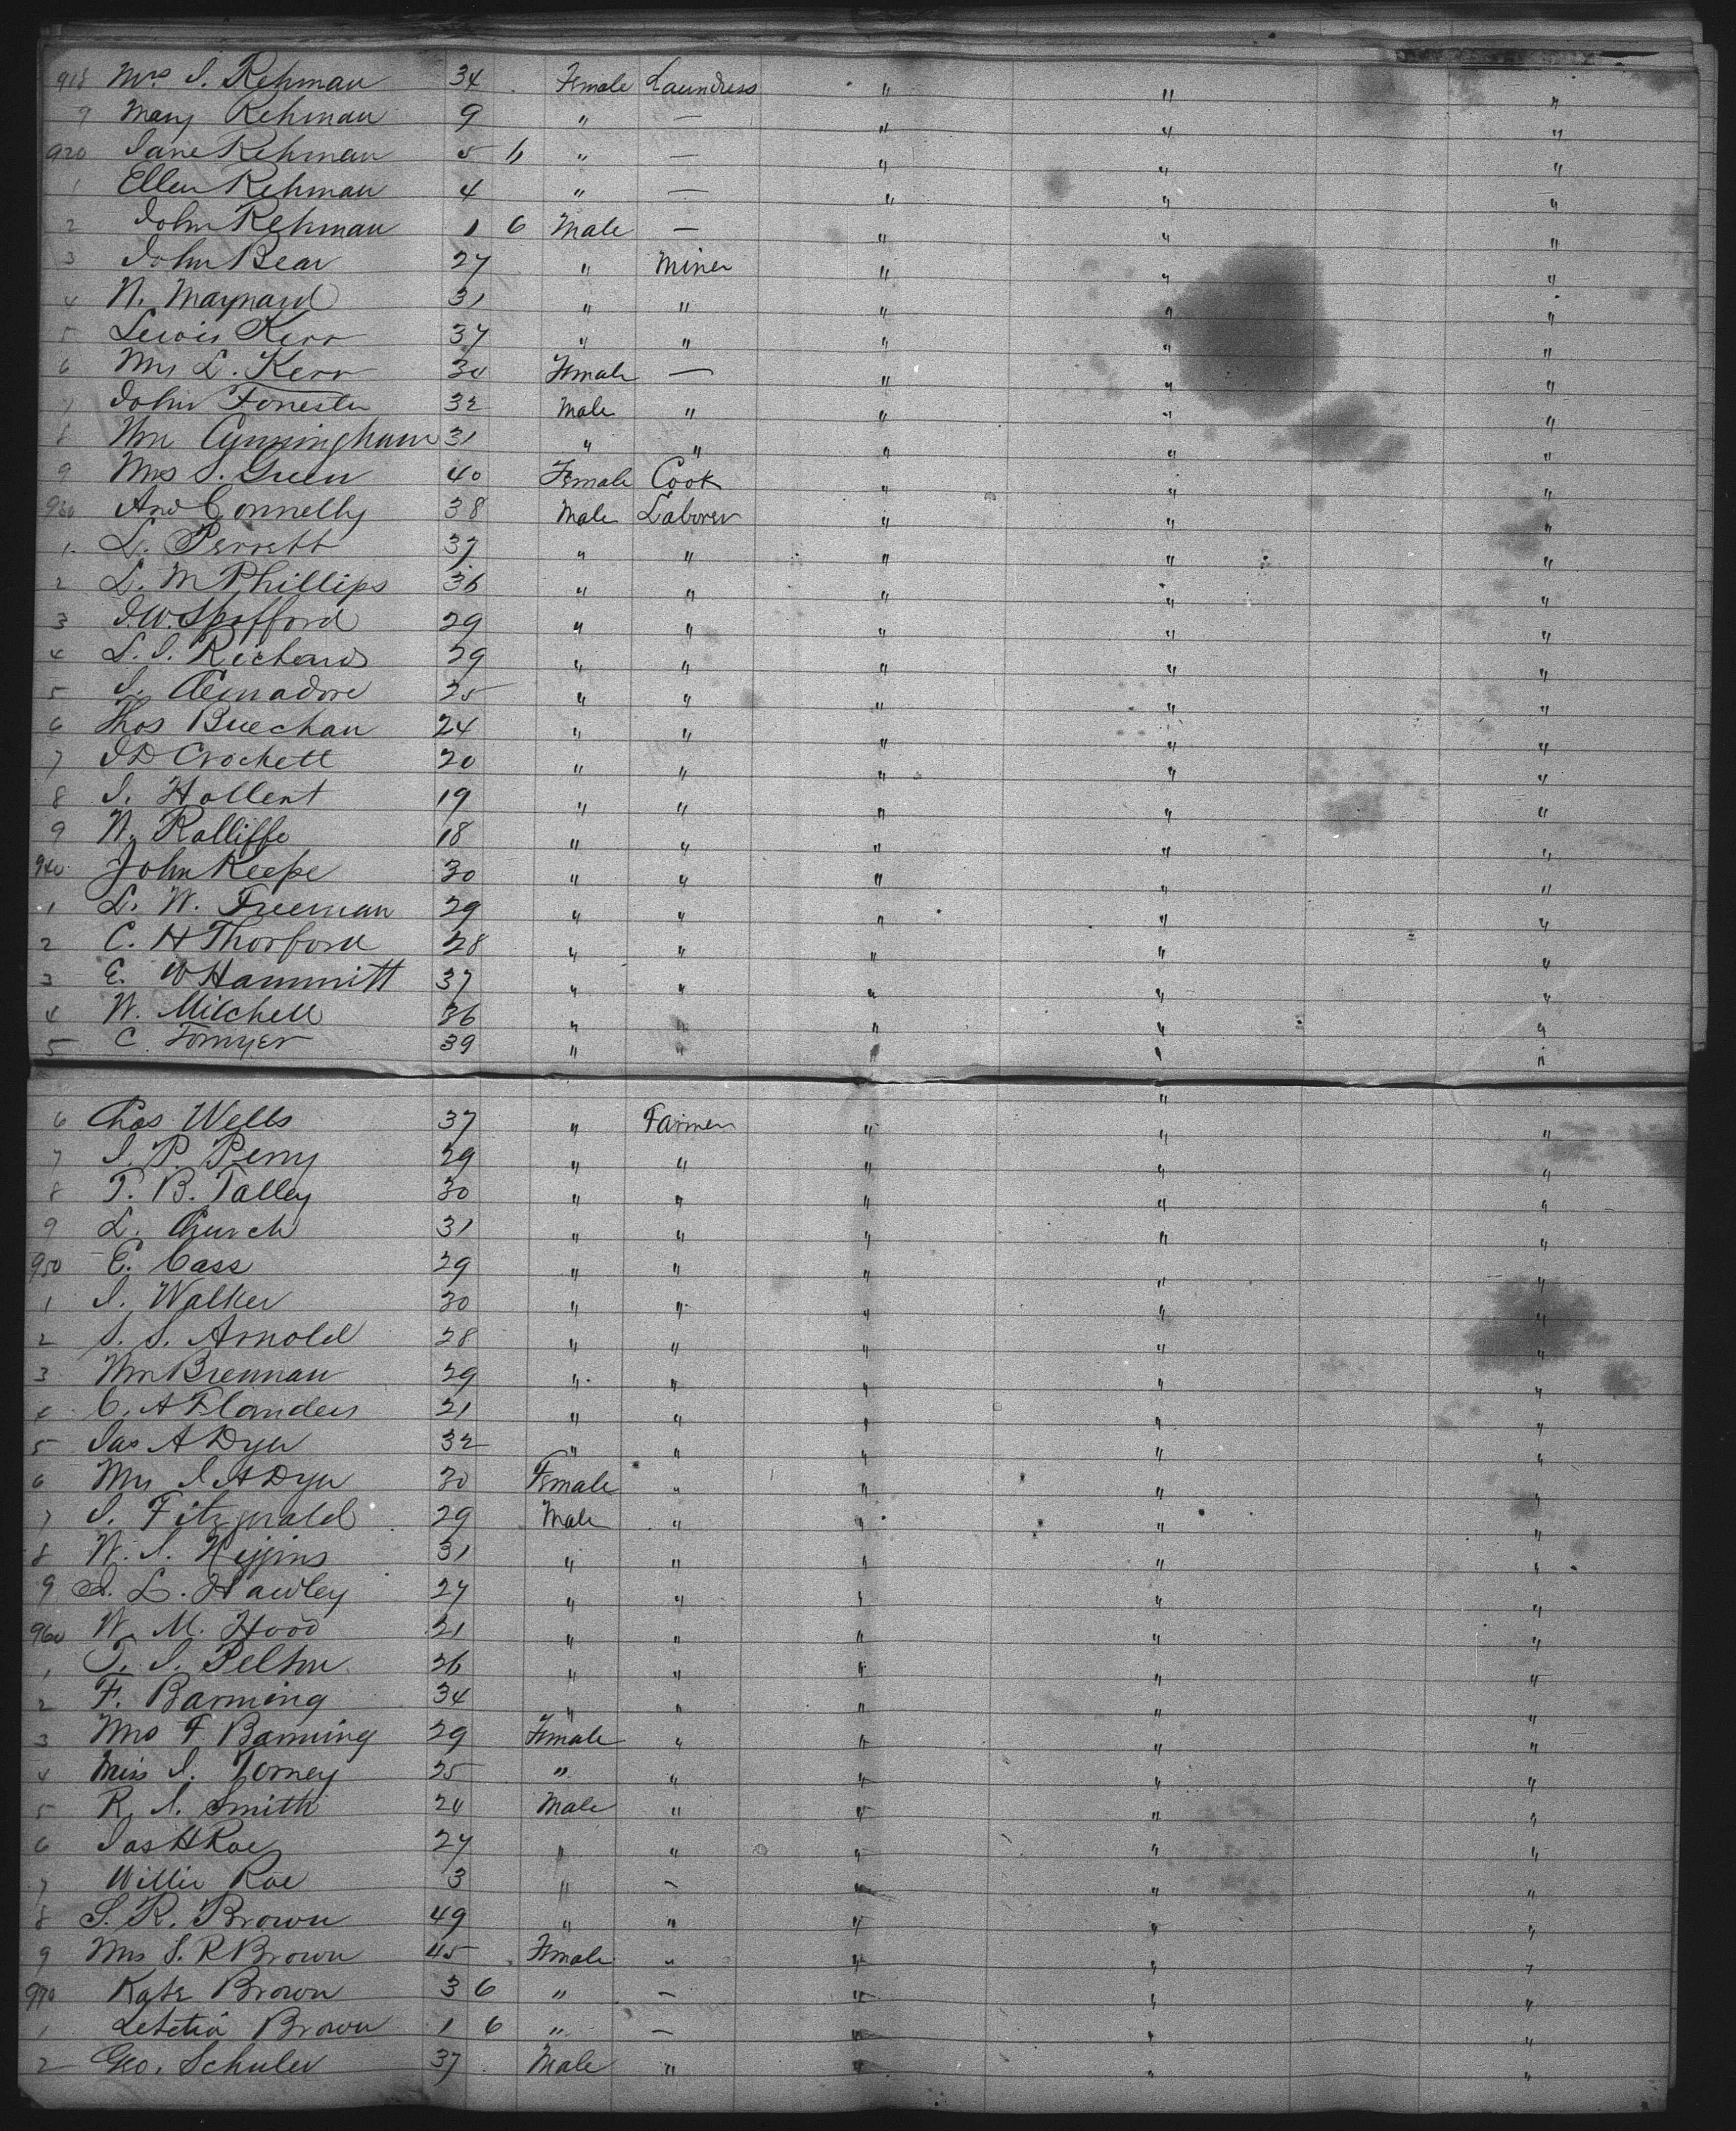 918 Mrs J. Rehman 34 Female Laundress " " "
9 Mary Rehman 9 " — " " "
920 Jane Rehman 5 6 " — " " "
1 Ellen Rehman 4 " — " " "
2 John Rehman 1 6 Male — " " "
3 John Bear 27 " Miner " " "
4 N. Maynard 31 " " " " "
5 Lewis Kerr 37 " " " " "
6 Mrs L. Kerr 30 Female — " " "
7 John Forrester 32 Male " " " "
8 Wm Cunningham 31 " " " " "
9 Mrs S. Green 40 Female Cook " " "
930 And Connelly 38 Male Laborer " " "
1 L. Perrett 37 " " " " "
2 L. M Phillips 36 " " " " "
3 J.W. Spofford 29 " " " " "
4 L. J. Richards 29 " " " " "
5 J. 25 " " " " "
6 Thos Buechan 24 " " " " "
7 J D Crockett 20 " " " " "
8 J. Hollert 19 " " " " "
9 N. Ralliffe 18 " " " " "
940 John Keepe 30 " " " " "
1 L. W. Freeman 29 " " " " "
2 C. H Thorford 28 " " " " "
3 E. W Hammitt 37 " " " " "
4 W. Mitchell 36 " " " " "
5 C. Tomyer 39 " " " " "
"
6 Chas Wells 37 " Farmer " " "
7 J. P. Perry 29 " " " " "
8 T. B. Talley 30 " " " " "
9 L. Church 31 " " " " "
950 E. Cass 29 " " " " "
1 J. Walker 30 " " " " "
2 S. S. Arnold 28 " " " " "
3 Wm Brennan 29 " " " " "
4 C. A Flanders 21 " " " " "
5 Jas A Dyer 32 " " " " "
6 Mrs J A Dyer 30 Female " " " "
7 J. Fitzgerald 29 Male " " " "
8 W. J. Higgins 31 " " " " "
9 A. L. Hawley 27 " " " " "
960 W. M. Hood 21 " " " " "
1 T. J. Pelton 26 " " " " "
2 F. Banning 34 " " " " "
3 Mrs F Banning 29 Female " " " "
4 Miss J. Torney 25 " " " " "
5 R. J. Smith 24 Male " " " "
6 Jas H Roe 27 " " " " "
7 Willie Roe 3 " — " " "
8 S. R. Brown 49 " " " " "
9 Mrs S. R Brown 45 Female " " " "
970 Kate Brown 3 6 " — " " "
1 Letetia Brown 1 6 " — " " "
2 Geo. Schuler 37 Male " " " "